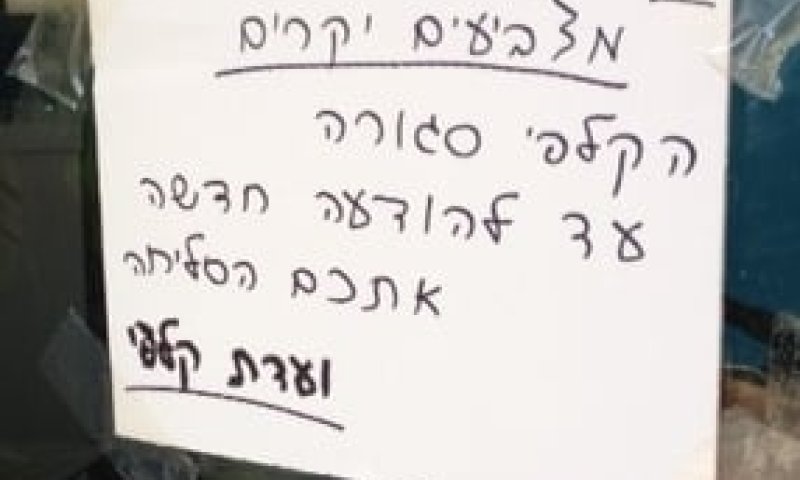 מצביעים יקרים
הקלפי סגורה
עד להודעה חדשה
אתכם הסליחה
ועדת קלפי